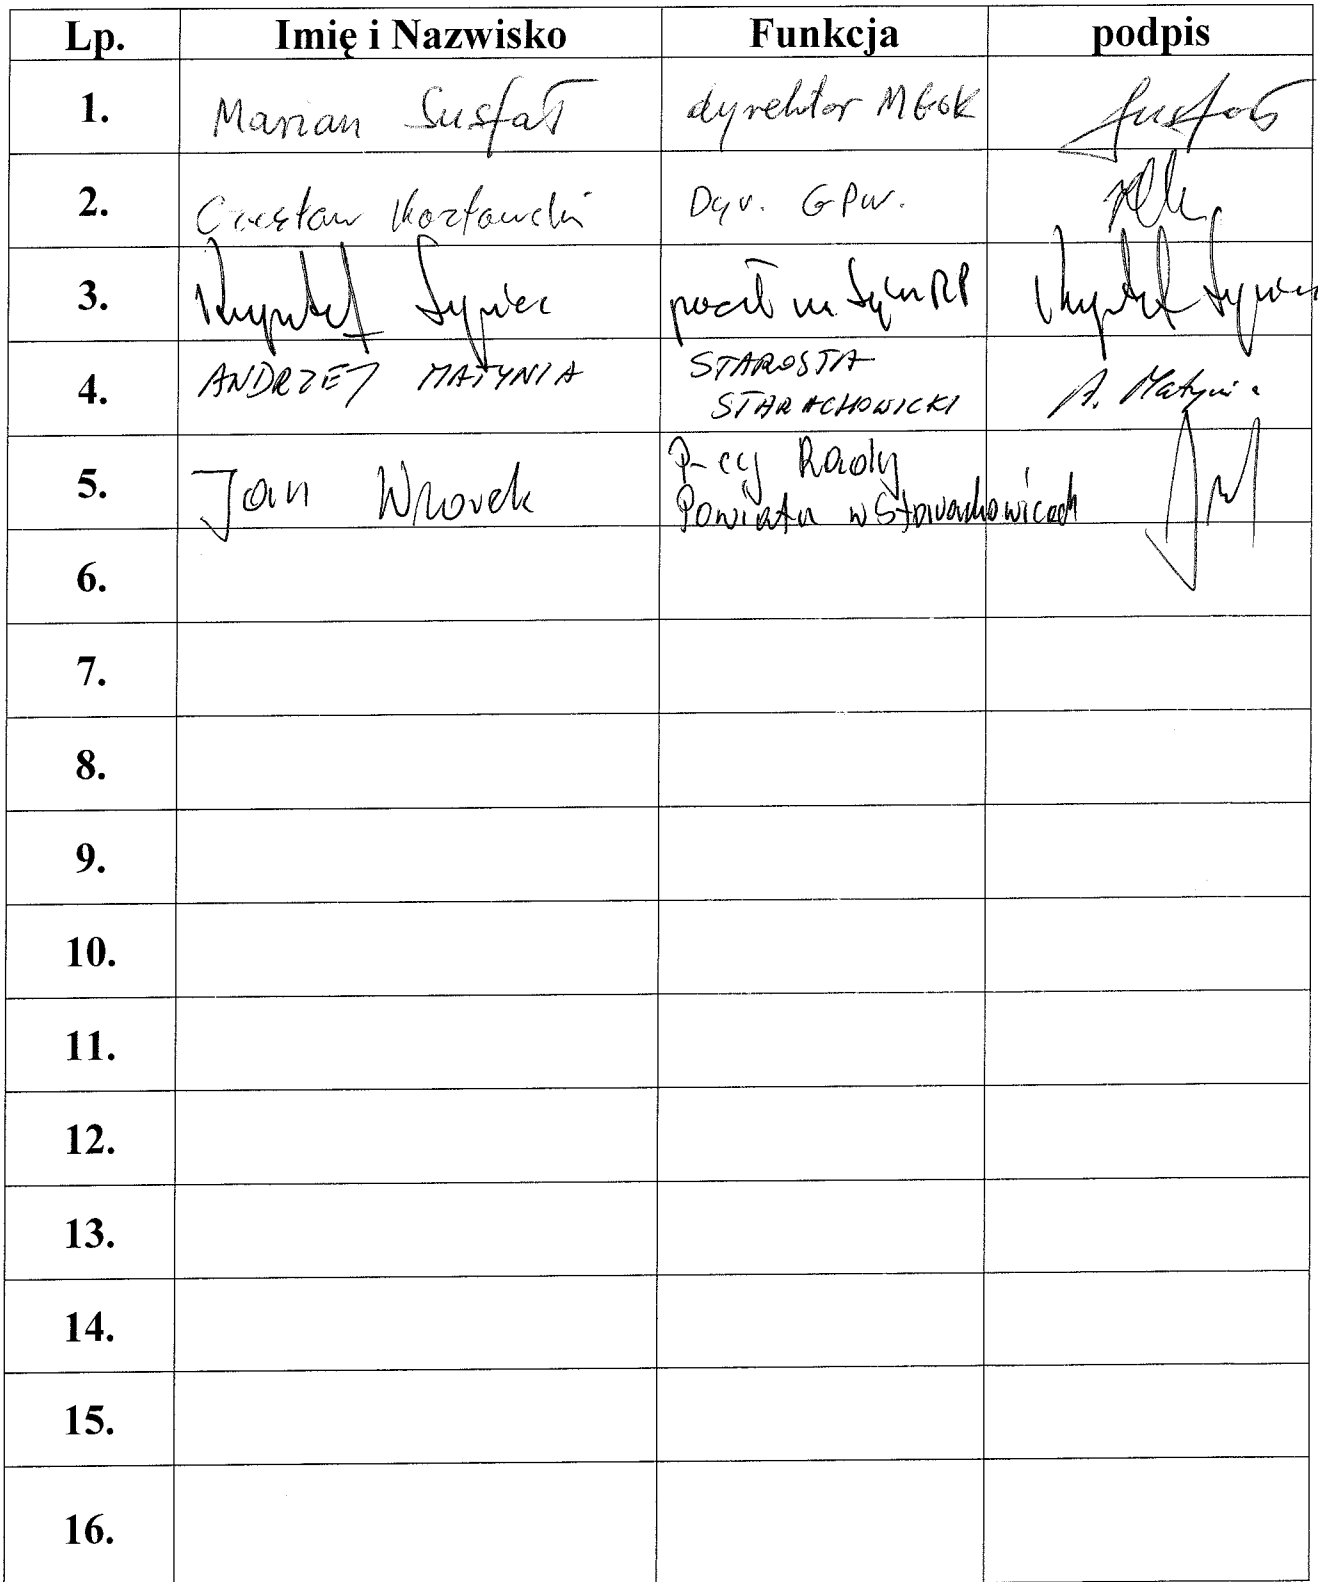 Lp. Imię i Nazwisko Funkcja podpis
1. Marian Susfał dyrektor MGOK Susfał
2. Czesław Kozłowski Dyr. GPW.
3. Krzysztof Lipiec poseł na Sejm RP Krzysztof Lipiec
4. ANDRZEJ MATYNIA STAROSTA
STARACHOWICKI A. Matynia
5. Jan Wzorek P-cy Rady
Powiatu w Starachowicach
6.
7.
8.
9.
10.
11.
12.
13.
14.
15.
16.